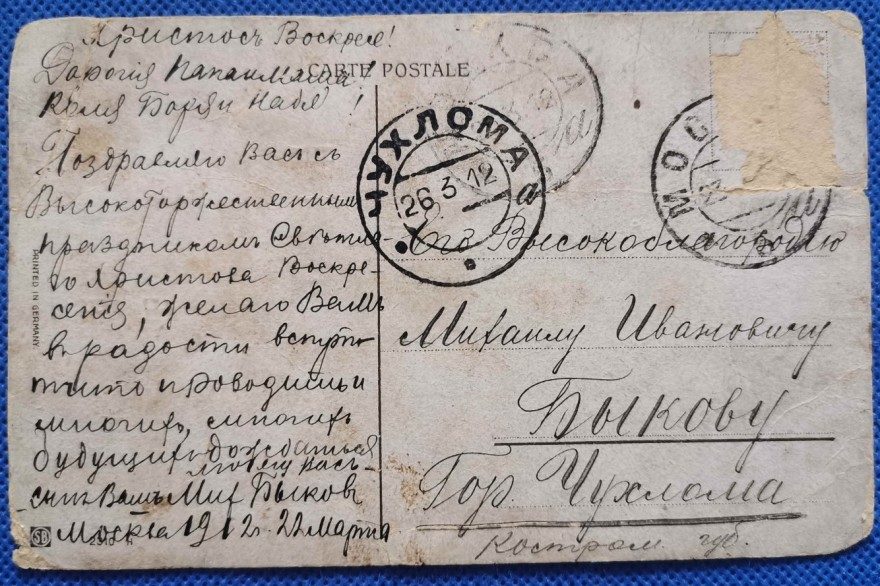 Христосъ Воскресе!
Дорогія Папа и Мама!
Коля Боря и Надя!
Поздравляю Васъ съ
Высокоторжественнымъ
праздникомъ Свѣтла-
го Христова Воскре-
сенія, желаю Вамъ
въ радости встрѣ-
тить и проводить и
многихъ, многихъ
будущихъ дождаться
любящій Васъ
сынъ Вашъ Мих Быковъ
Москва 1912 г. 22 Марта
CARTE POSTALE
ЧУХЛОМА
26 3 12
а
МОСКВА
Его Высокоблагородію
Михаилу Ивановичу
Быкову
Гор. Чухлома
Костром. губ.
PRINTED IN GERMANY
SB